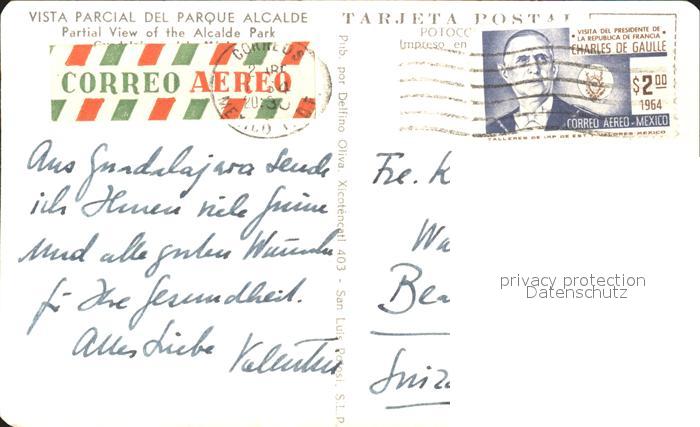 VISTA PARCIAL DEL PARQUE ALCALDE
Partial View of the Alcalde Park
CORREO AEREO
CORREOS
20:30
Aus Guadalajara sende
ich Ihnen viele Grüsse
und alle guten Wünsche
für Ihre Gesundheit.
Alles Liebe
Valentin
Pub. por Delfino Oliva, Xicoténcatl 403 - San Luis Potosí, S.L.P.
TARJETA POSTAL
Impreso en
VISITA DEL PRESIDENTE DE
LA REPUBLICA DE FRANCIA
CHARLES DE GAULLE
$2.00
1964
CORREO AEREO-MEXICO
TALLERES DE IMP. DE EST. Y VALORES MEXICO
Fre. K
Wa
Bea
privacy protection
Datenschutz